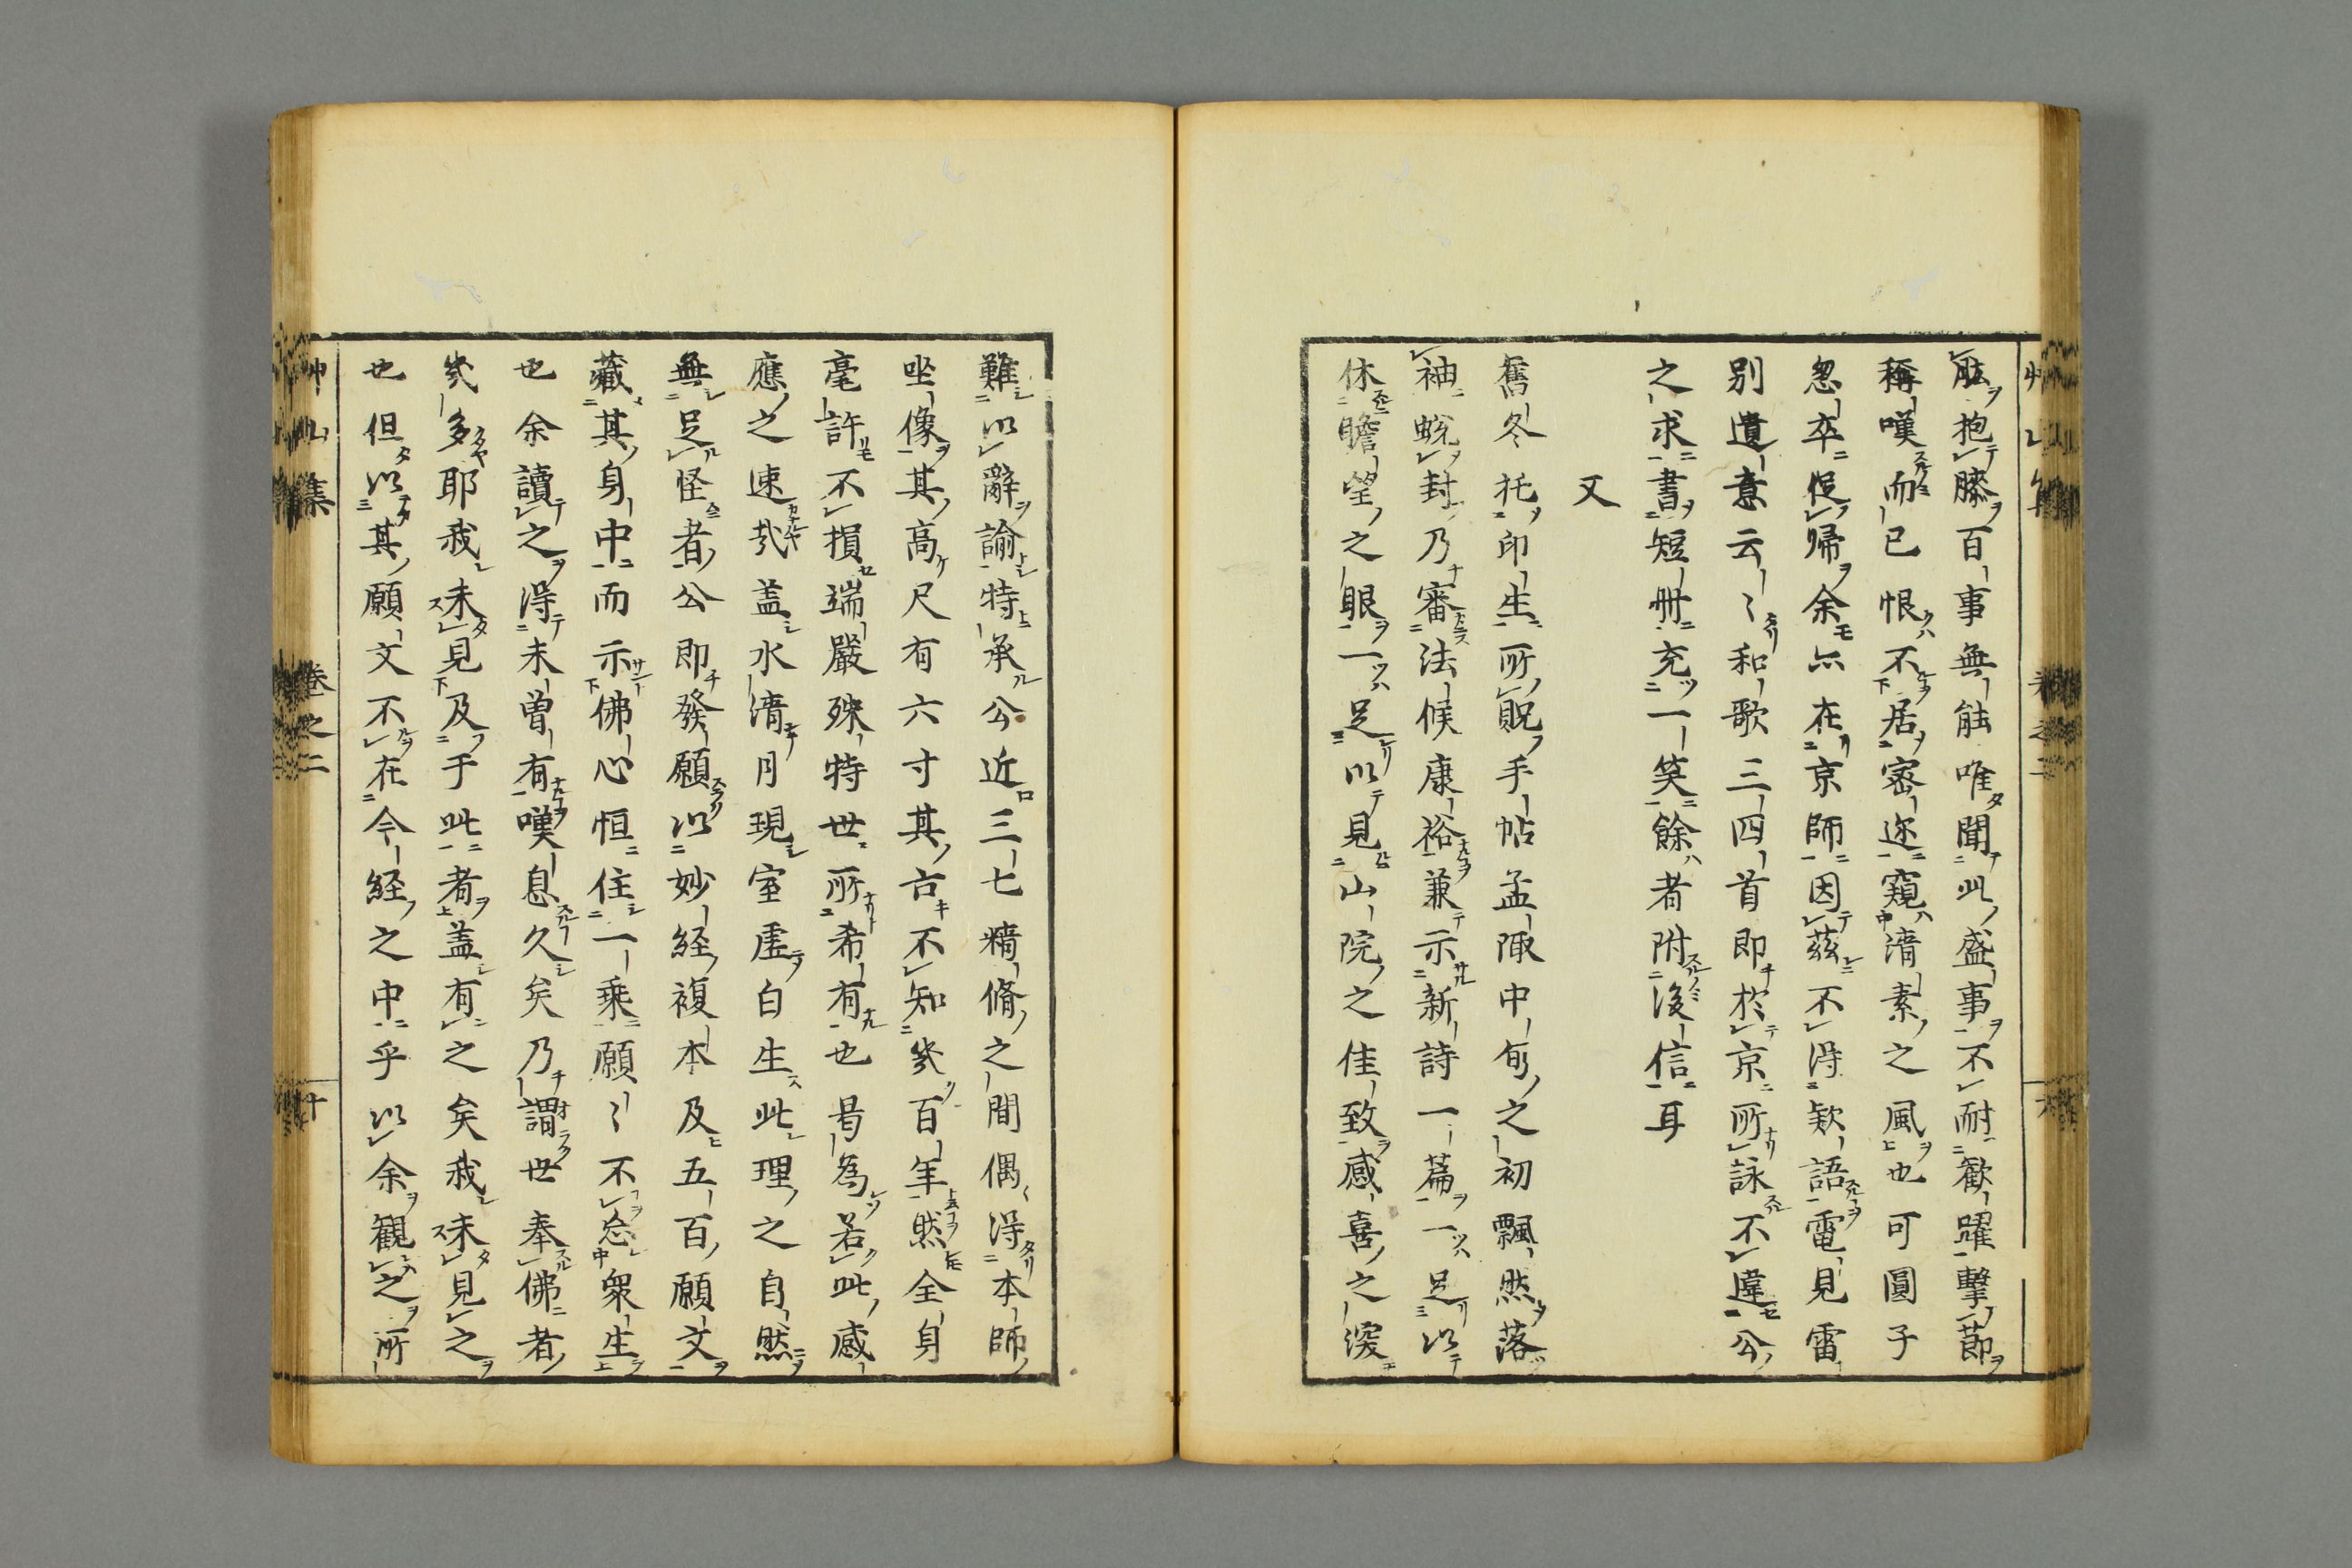 肱抱膝百事無能唯聞此盛事不耐歡躍擊節
稱嘆而已恨不居密迩窺清素之風也可圓子
怱卒促歸余亦在京師因茲不得欵語電見雷
別遺意云〻和歌三四首即於京所詠不違公
之求書短冊充一笑餘者附後信耳
又
舊冬托印生所貺手帖孟陬中旬之初飄然落
袖蛻封乃審法候康裕兼示新詩一篇一足以
休瞻望之眼一足以見山院之佳致感喜之深
難以辭諭特承公近三七精脩之間偶得本師
坐像其高尺有六寸其古不知幾百年然全身
毫許不損端嚴殊特世所希有也曷為若此感
應之速哉盖水清月現室虛白生此理之自然
無足怪者公即發願以妙經複本及五百願文
藏其身中而示佛心恒住一乘願〻不忘衆生
也余讀之得未曾有嘆息久矣乃謂世奉佛者
幾多耶我未見及于此者盖有之矣我未見之
也但以其願文不在今經之中乎以余觀之所
艸山集 卷之二 十